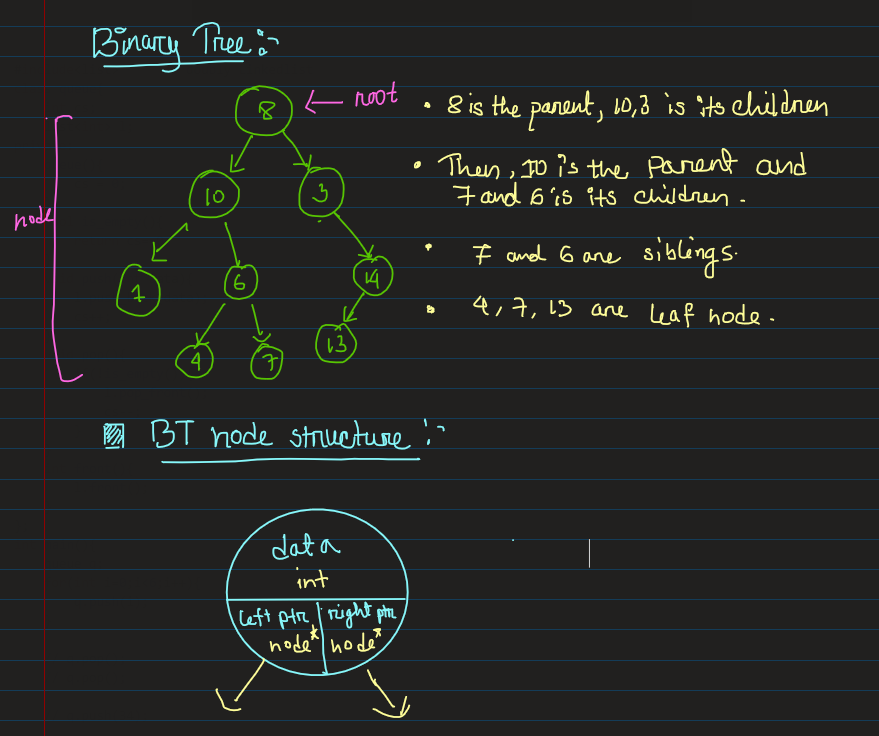 Binary Tree :-
8
← root
10
3
node
1
6
14
4
7
13
• 8 is the parent, 10,3 is its children
• Then, 10 is the parent and
7 and 6 is its children.
• 7 and 6 are siblings.
• 4, 7, 13 are leaf node.
BT node structure :-
data
int
left ptr
right ptr
node*
node*